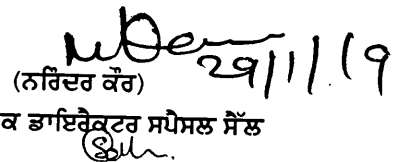 29/1/19
(ਨਰਿੰਦਰ ਕੌਰ)
ਕ ਡਾਇਰੈਕਟਰ ਸਪੈਸਲ ਸੈੱਲ